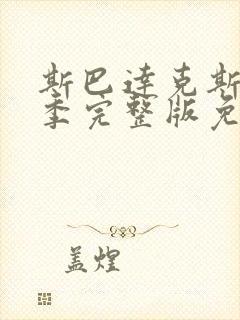 斯巴达克斯
季完整版免
盖煌